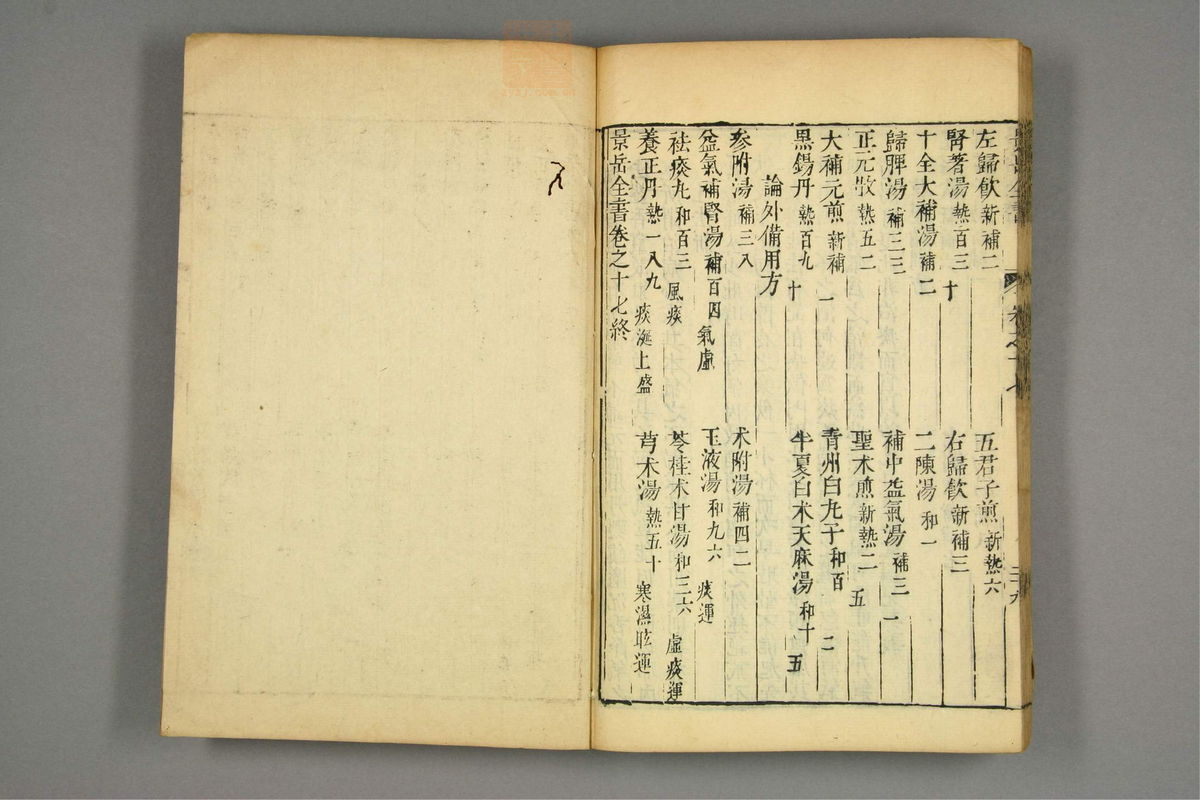 左歸飲 新補二 五君子煎 新熱六
腎著湯 熱百三十 右歸飲 新補三
十全大補湯 補二十 二陳湯 和一
歸脾湯 補三二 補中益氣湯 補三一
正元散 熱五二 聖术煎 新熱二五
大補元煎 新補一 青州白丸子 和百二
黑錫丹 熱百九十 半夏白术天麻湯 和十五
論外備用方
參附湯 補三八 术附湯 補四二
益氣補腎湯 補百四 氣虛 玉液湯 和九六 痰運
祛痰丸 和百三 風痰 苓桂术甘湯 和三六 虛痰運
養正丹 熱一八九 痰涎上盛 芎术湯 熱五十 寒濕眩運
景岳全書卷之十七終